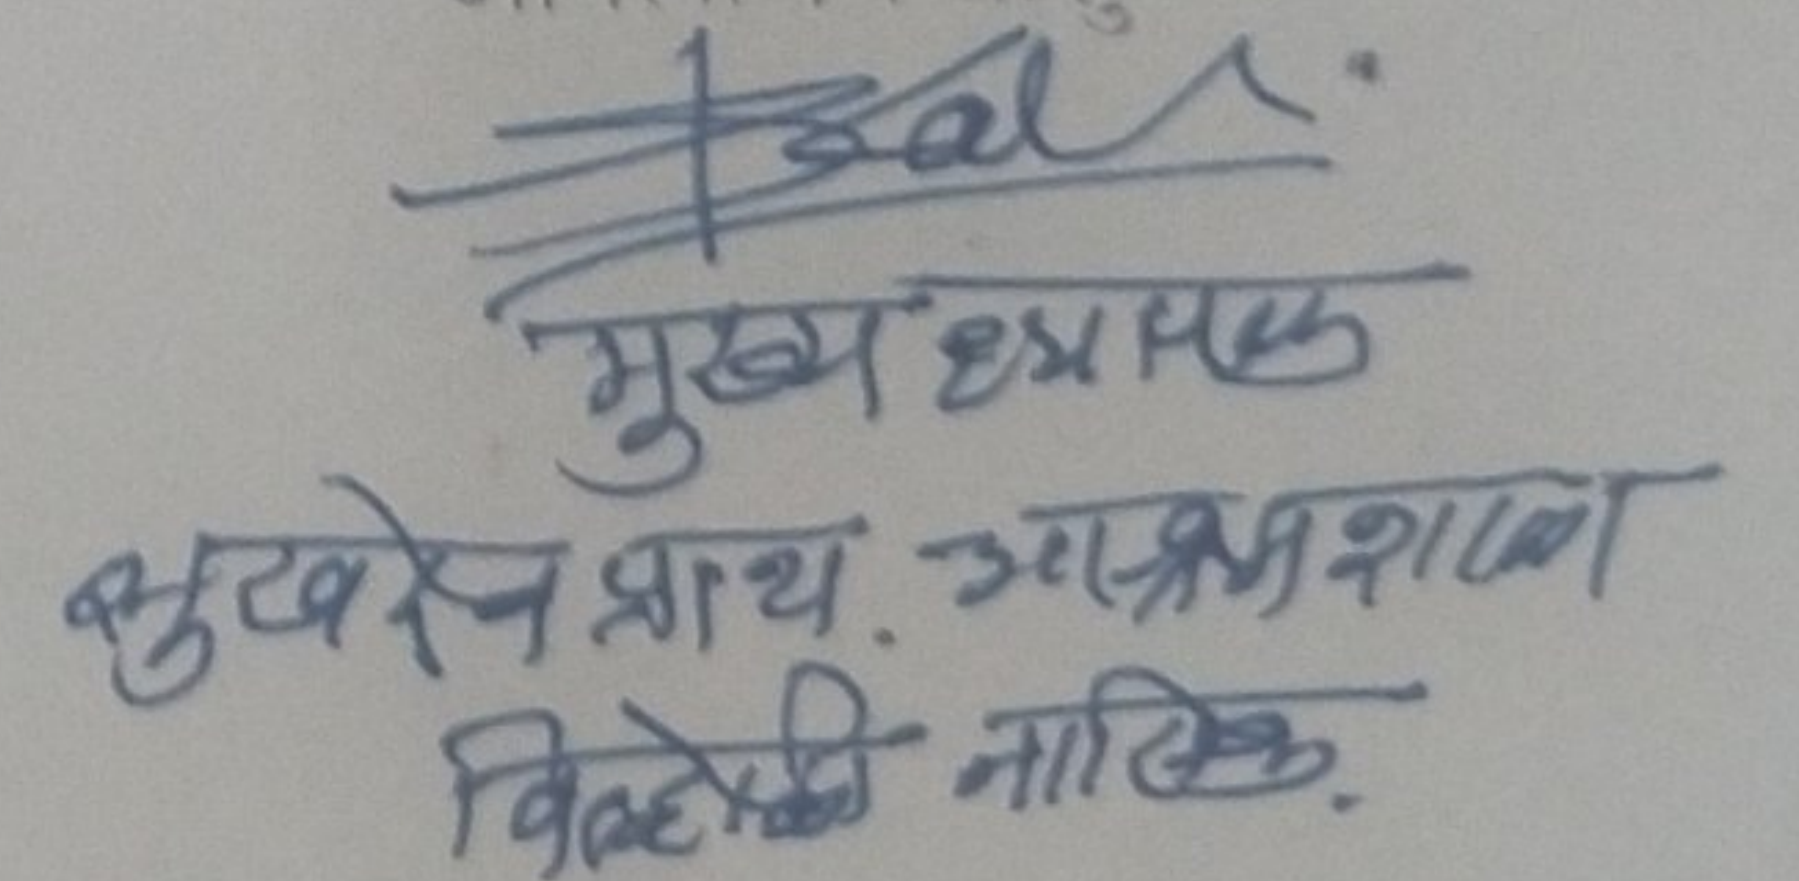 मुख्यध्यापक
सुखदेव प्राथ. आश्रमशाळा
विल्होळी नाशिक.